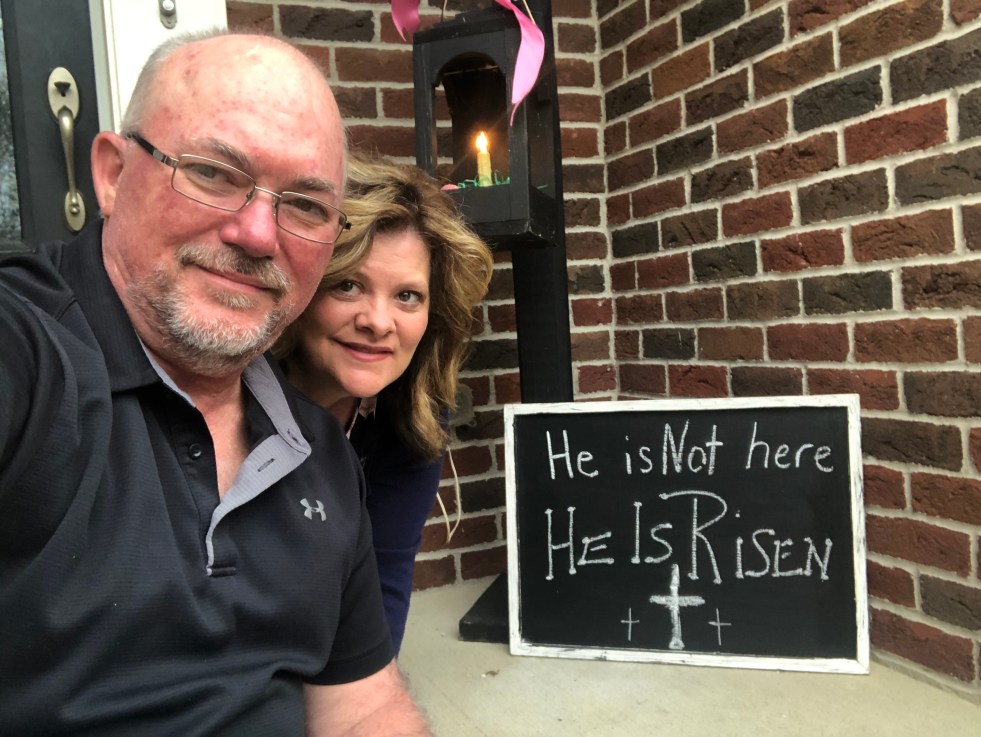 He is Not here
He Is Risen